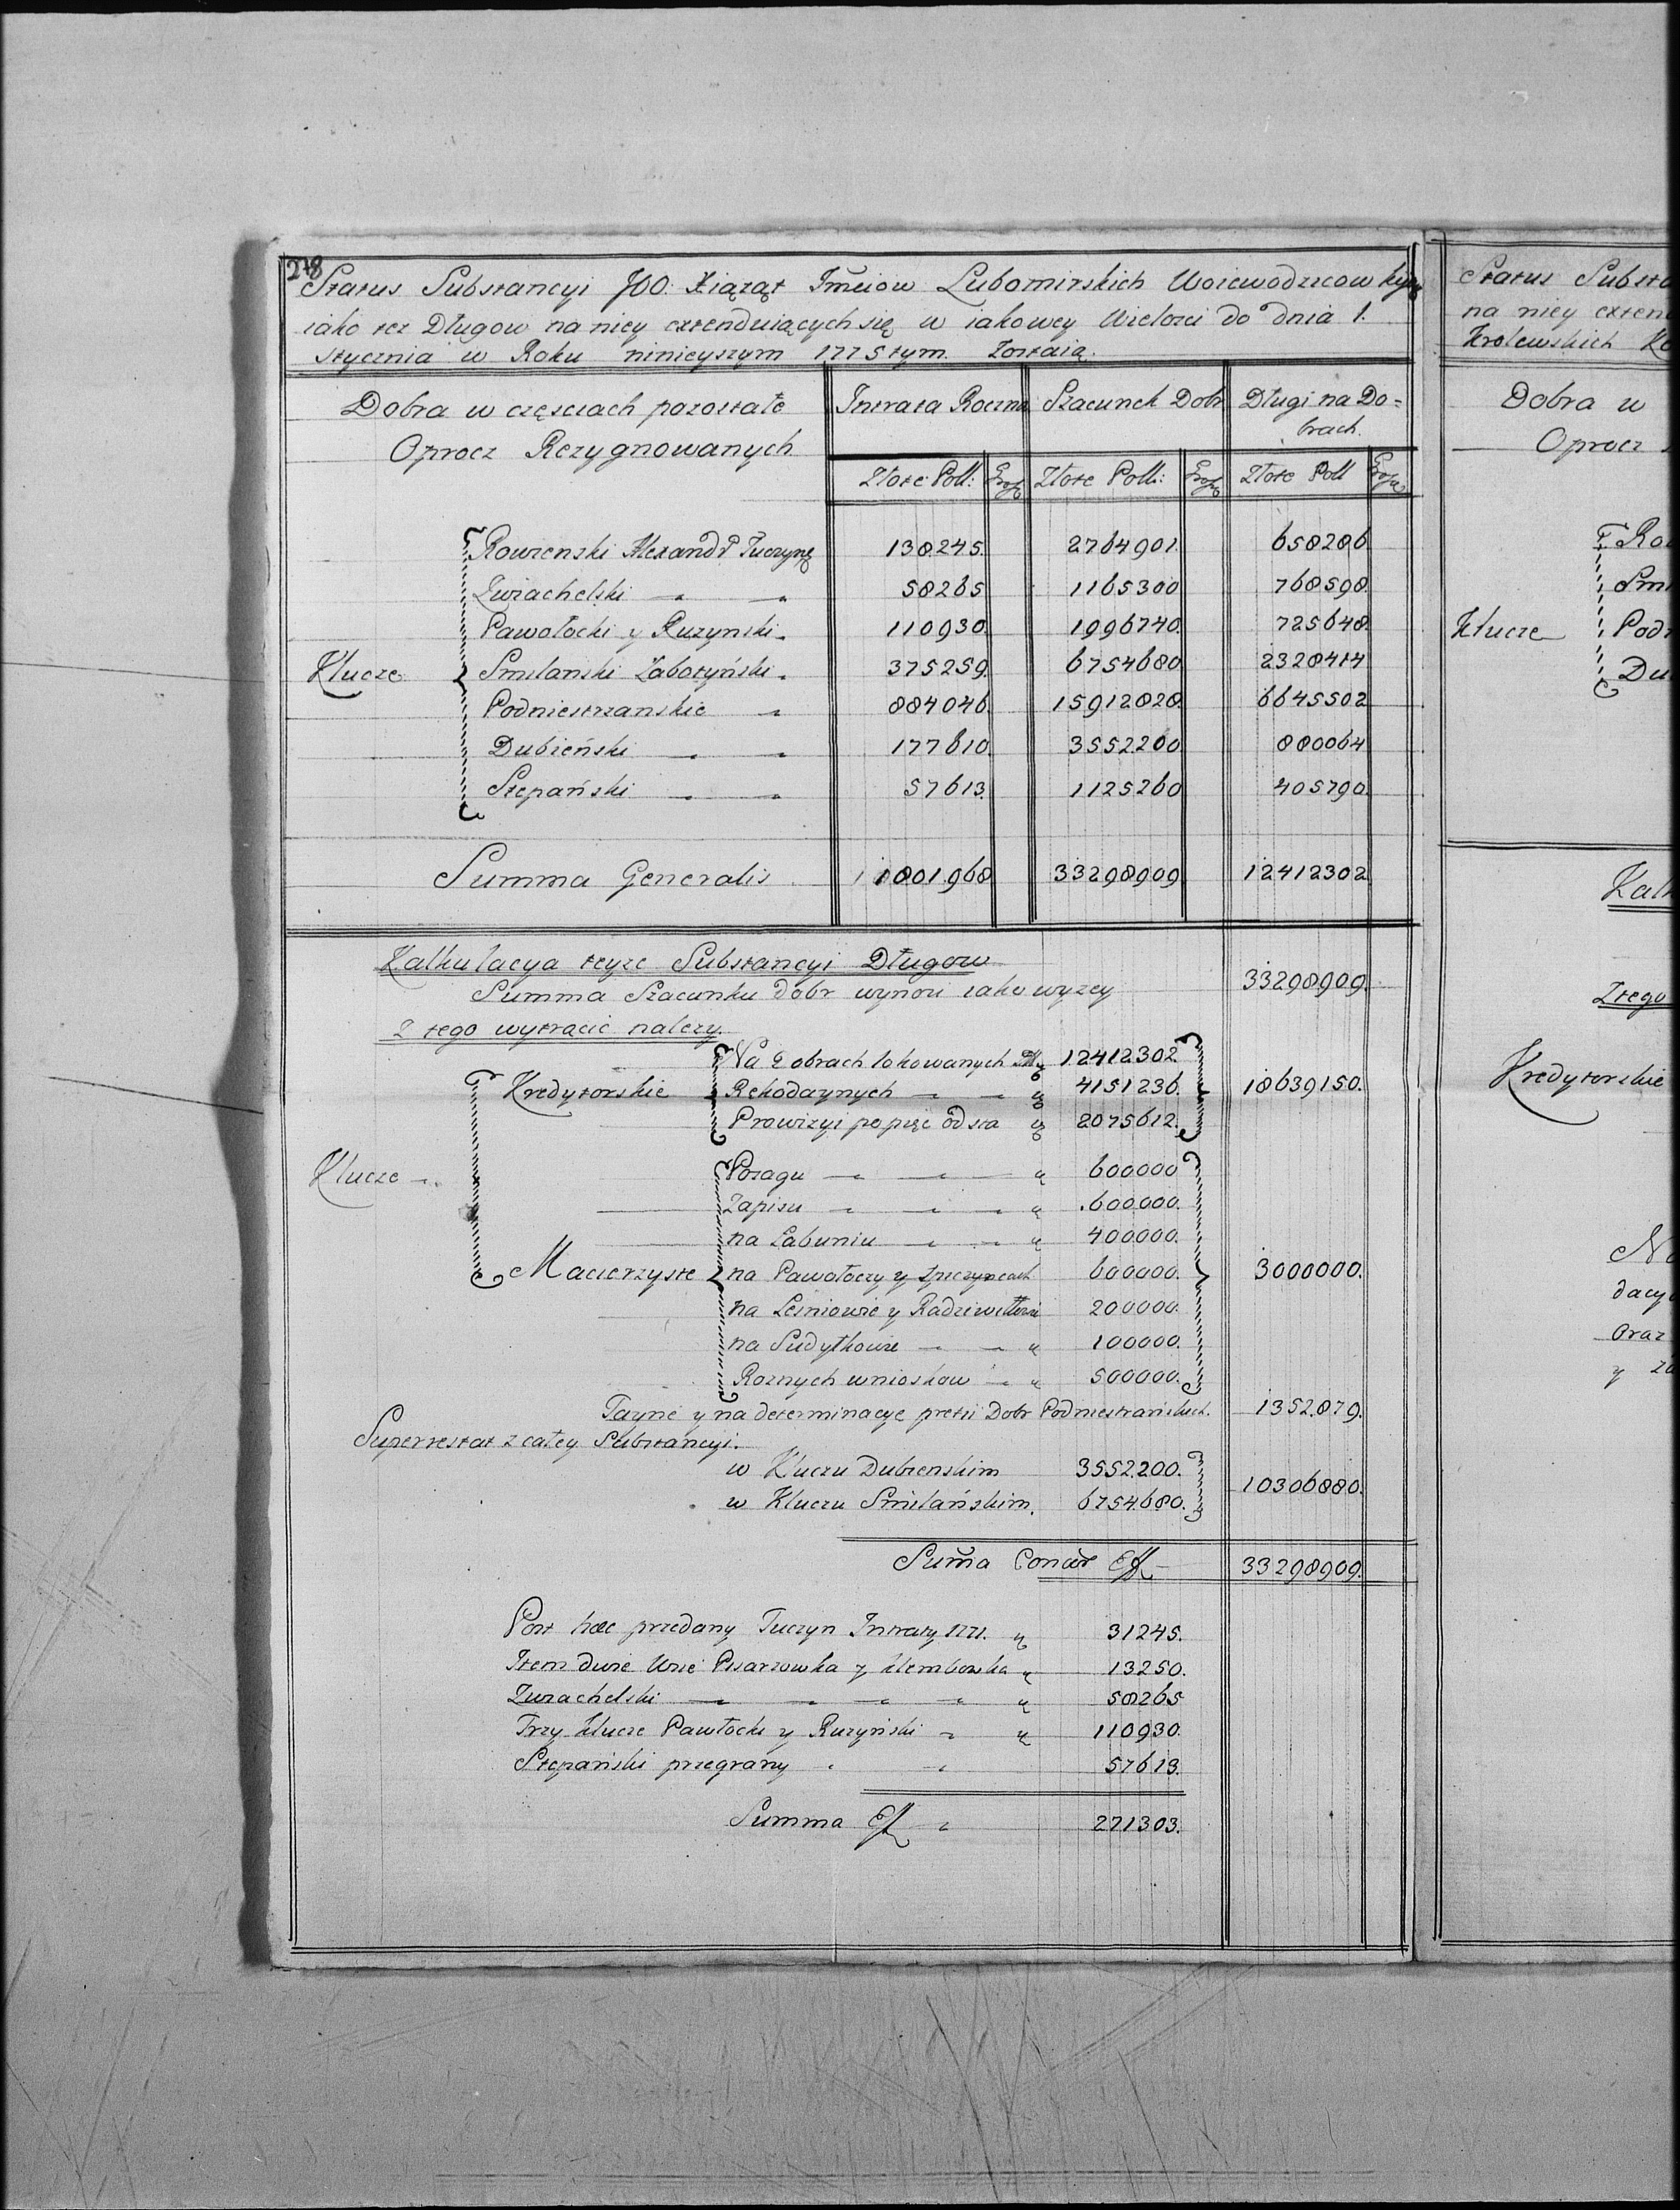 278
Status Substancyi JOO. Xiążąt Jmciow Lubomirskich Woiewodzicow
iako tez Długow na niey extenduiących się w iakowey Wielosci do dnia 1.
Stycznia w Roku ninieyszym 1775tym. Zostaią.
Dobra w częsciach pozostałe
Oprocz Rezygnowanych
Intrata Roczna
Szacunek Dobr
Długi na Do=
brach.
Złote Poll: Grosze Złote Poll: Grosze Złote Poll Grosze
Rowienski Alexandr Tuczyn 138245. 2764901. 658286
Zwiachelski 58265 1165300 768598.
Pawołocki y Ruzynski. 110930. 1996740. 725648
Klucze Smilanski Zabotyński. 375259. 6754680 2328414
Podniestrzanskie 884046. 15912828. 6645502
Dubieński 177610. 3552200 880064
Stepański 57613. 1125260 405790.
Summa Generalis 1801968 33298909 12412302
Kalkulacya teyze Substancyi Długow
Summa Szacunku dobr wynosi iako wyzey 33298909.
z tego wytrącic nalezy.
Na Dobrach lokowanych 12412302.
Kredytorskie Rekodaynych 4151236. 18639150.
Prowizyi po pięc od sta 2075612.
Klucze
Posagu 600000
Zapisu 600000.
na Łabuniu 400000.
Macierzyste na Pawołoczy y Spiczyncach 600000. 3000000.
na Lesniowie y Radziwiłłowie 200000.
na Sudyłkowie 100000.
Roznych wnioskow 500000.
Tayne y na determinacye pretii Dobr Podniestrańskich. 1352079.
Superrestat z całey Substancyi.
w Kluczu Dubienskim 3552200.
w Kluczu Smilańskim. 6754680. 10306880.
Suma 33298909.
Post hæc przedany Tuczyn Intraty 1771. 31245.
Item dwie Wsie Pisarzowka y Klembowka 13250.
Zwiachelski 58265
Trzy Klucze Pawłocki y Ruzyński 110930.
Stepański przegrany 57613.
Summa 271303.
Status Subst
na niey exten
Krolewskich
Dobra w
Oprocz
Klucze
Z tego
Kredytorskie
oraz
y